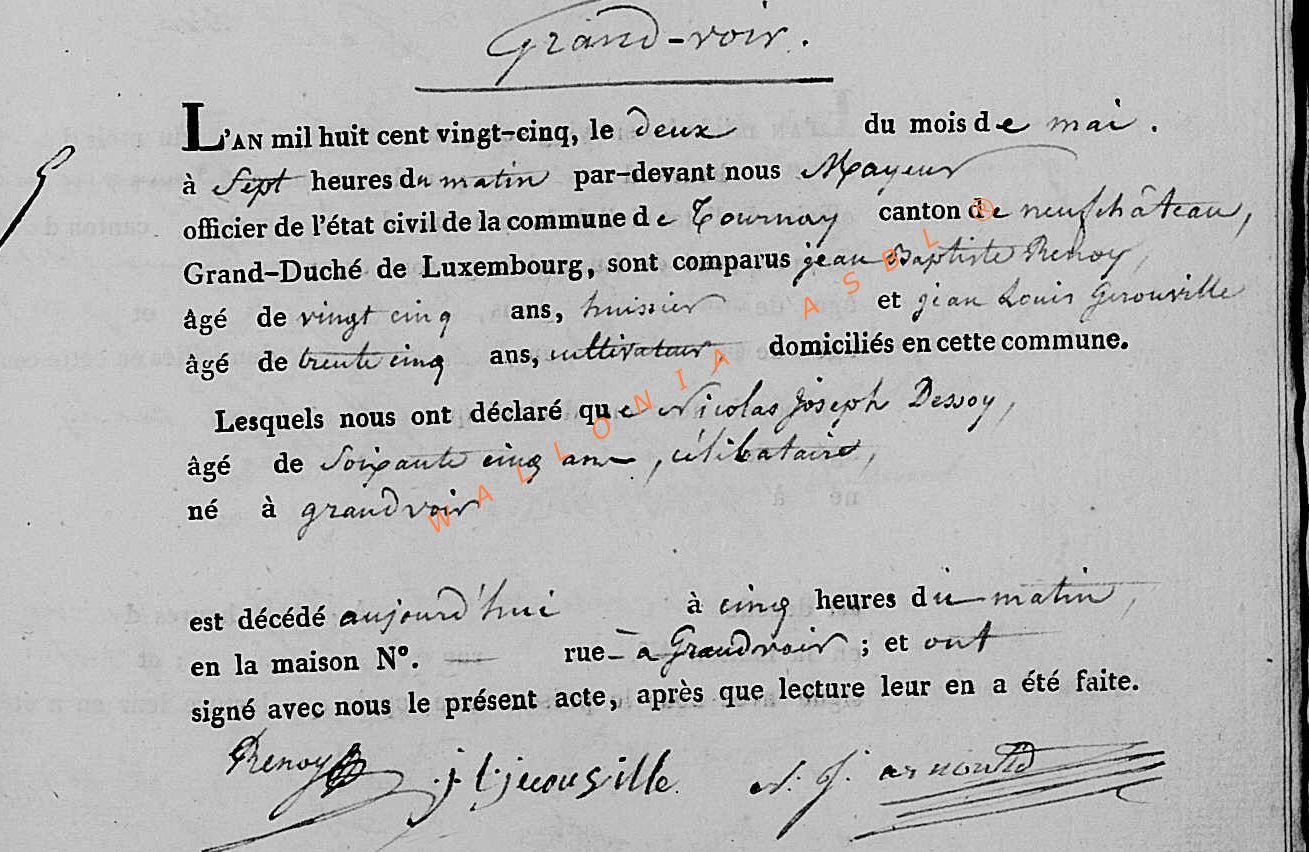 Grand-voir.
L'AN mil huit cent vingt-cinq, le deux du mois de mai.
à Sept heures du matin par-devant nous Mayeur
officier de l'état civil de la commune de Tournay canton de neufchâteau,
Grand-Duché de Luxembourg, sont comparus jean Baptiste Renoy,
âgé de vingt cinq ans, huissier et jean Louis Gerouville
âgé de trente cinq ans, cultivateur domiciliés en cette commune.
Lesquels nous ont déclaré que Nicolas Joseph Dessoy,
âgé de Soixante cinq ans, célibataire,
né à grandvoir
est décédé aujourd'hui à cinq heures du matin,
en la maison N°. — rue — à Grandvoir ; et ont
signé avec nous le présent acte, après que lecture leur en a été faite.
Renoy j. l. jerouville N. J.
WALLONIA ASBL ®